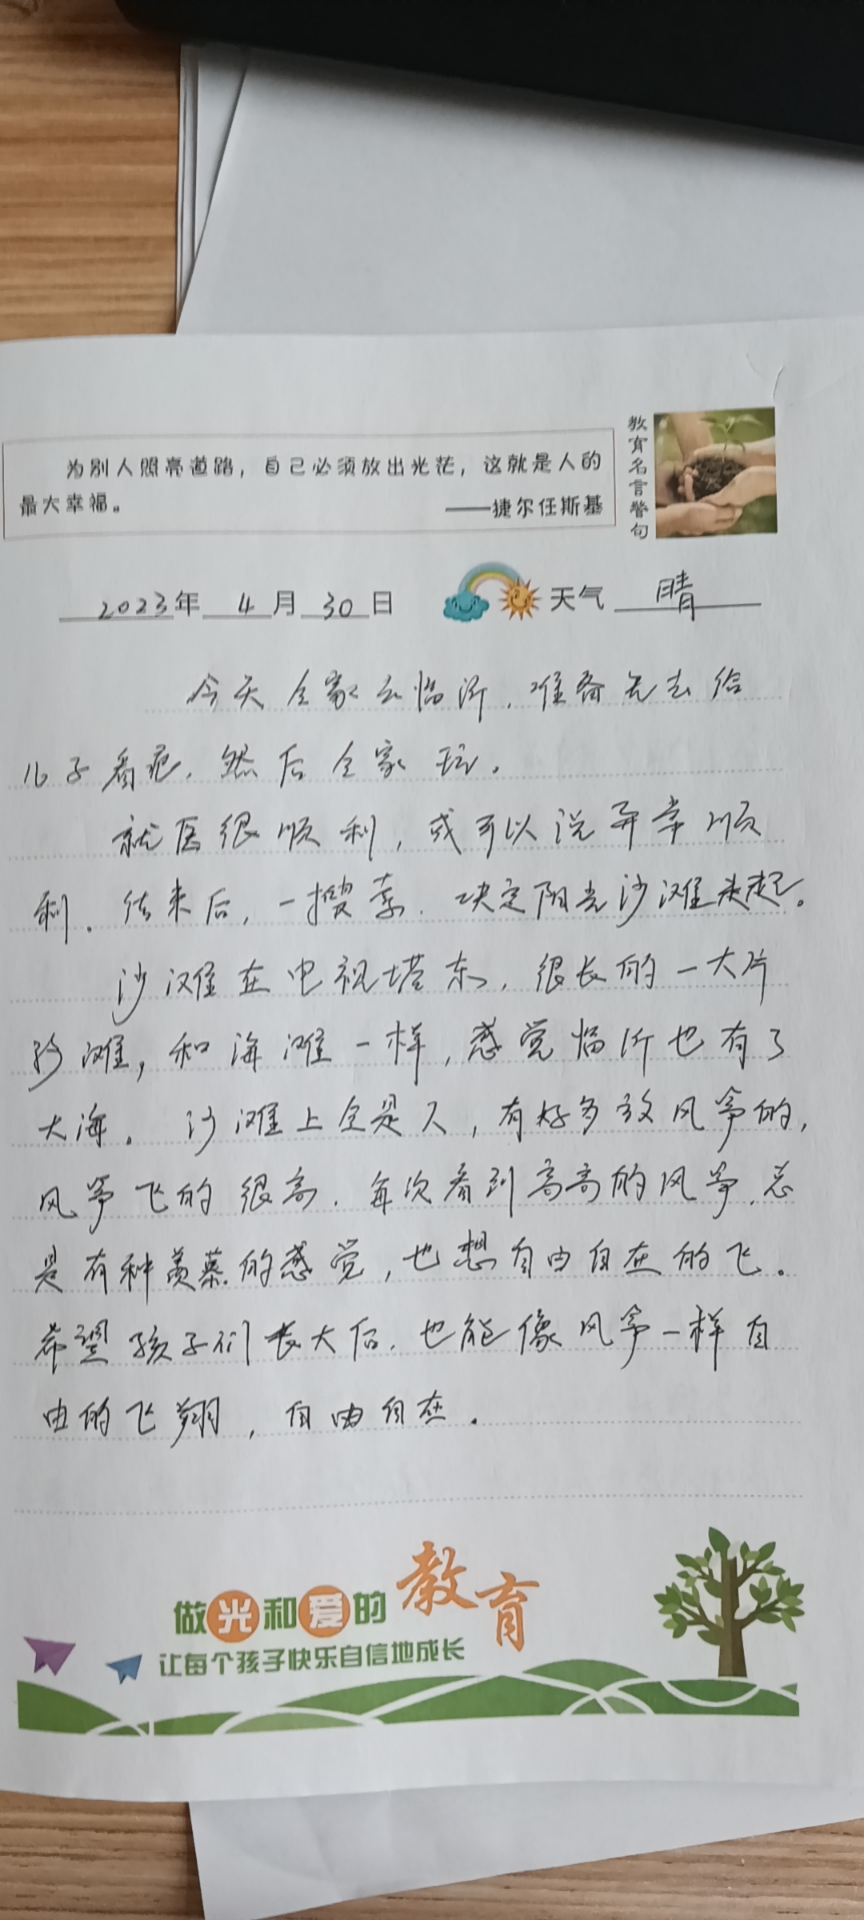 为别人照亮道路，自己必须放出光茫，这就是人的
最大幸福。
——捷尔任斯基
教育名言警句
2023年 4月30日 天气 晴
今天全家去临沂，准备先去给
儿子看疤，然后全家玩。
就医很顺利，或可以说异常顺
利。结束后，一搜索，决定阳光沙滩走起。
沙滩在电视塔东，很长的一大片
沙滩，和海滩一样，感觉临沂也有了
大海。沙滩上全是人，有好多放风筝的，
风筝飞的很高，每次看到高高的风筝，总
是有种羡慕的感觉，也想自由自在的飞。
希望孩子们长大后，也能像风筝一样自
由的飞翔，自由自在。
做光和爱的教育
让每个孩子快乐自信地成长